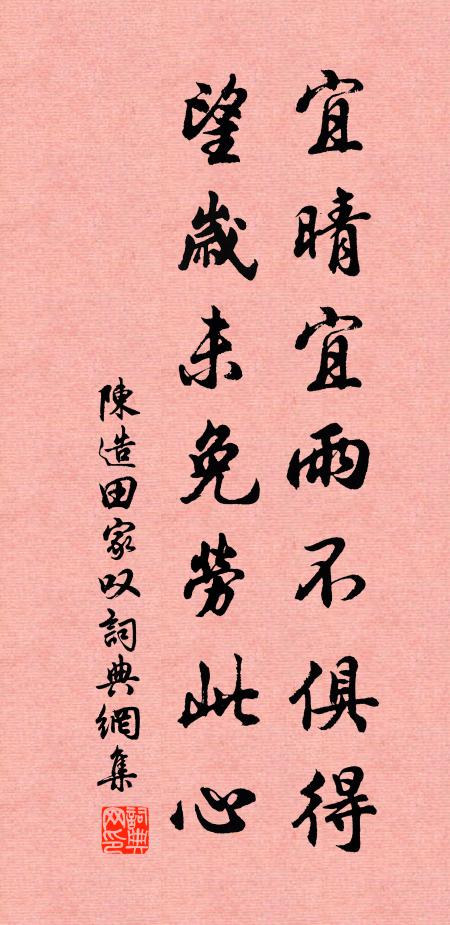 宜晴宜雨不俱得
望歲未免勞此心
陳造田家叹詞典網集
詞典网印